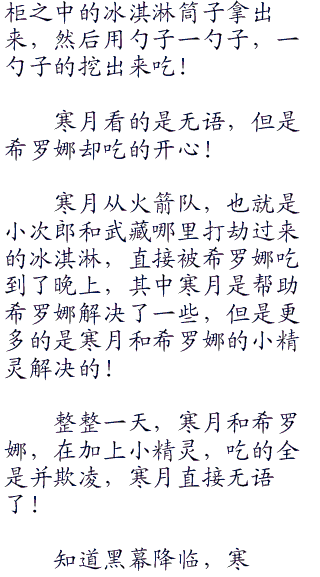 柜之中的冰淇淋筒子拿出
来，然后用勺子一勺子，一
勺子的挖出来吃！
寒月看的是无语，但是
希罗娜却吃的开心！
寒月从火箭队，也就是
小次郎和武藏哪里打劫过来
的冰淇淋，直接被希罗娜吃
到了晚上，其中寒月是帮助
希罗娜解决了一些，但是更
多的是寒月和希罗娜的小精
灵解决的！
整整一天，寒月和希罗
娜，在加上小精灵，吃的全
是并欺凌，寒月直接无语
了！
知道黑幕降临，寒